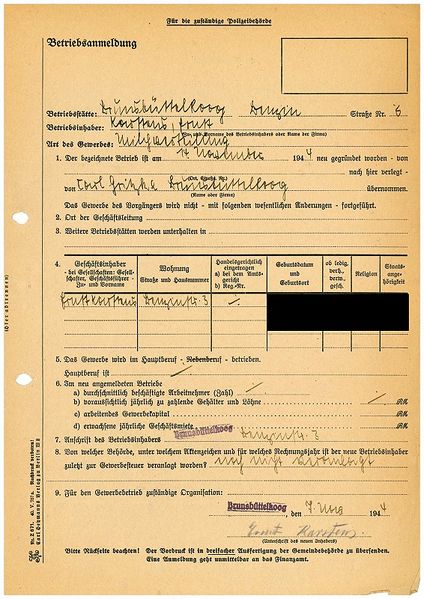 Für die zuständige Polizeibehörde
Betriebsanmeldung
Betriebsstätte: Brunsbüttelkoog Straße Nr.
Betriebsinhaber: Karstens, Ernst
(Zu- und Vorname des Betriebsinhabers oder Name der Firma)
Art des Gewerbes: Milchverteilung
1. Der bezeichnete Betrieb ist am November 194 neu gegründet worden - von
(Ort, Straße, Nr.) nach hier verlegt -
von Carl Brunsbüttelkoog übernommen.
(Name oder Firma)
Das Gewerbe des Vorgängers wird nicht - mit folgenden wesentlichen Änderungen - fortgeführt.
2. Ort der Geschäftsleitung
3. Weitere Betriebsstätten werden unterhalten in
4. Geschäftsinhaber
- bei Gesellschaften: Gesell-
schafter, Geschäftsführer -
Zu- und Vorname
Wohnung
Straße und Hausnummer
Handelsgerichtlich
eingetragen
a) bei dem Amts-
gericht
b) Reg.-Nr.
Geburtsdatum
und
Geburtsort
ob ledig,
verh.,
verw.,
gesch.
Religion
Staats-
ange-
hörigkeit
Ernst Karstens 3 -/-
5. Das Gewerbe wird im Hauptberuf - Nebenberuf - betrieben.
Hauptberuf ist
6. Im neu angemeldeten Betriebe
a) durchschnittlich beschäftigte Arbeitnehmer (Zahl)
b) voraussichtlich jährlich zu zahlende Gehälter und Löhne RM
c) arbeitendes Gewerbekapital RM
d) erwachsene jährliche Geschäftsmiete RM
7. Anschrift des Betriebsinhabers Brunsbüttelkoog 3
8. Von welcher Behörde, unter welchem Aktenzeichen und für welches Rechnungsjahr ist der neue Betriebsinhaber
zuletzt zur Gewerbesteuer veranlagt worden? noch nicht veranlagt
9. Für den Gewerbebetrieb zuständige Organisation:
Brunsbüttelkoog, den 194
Ernst Karstens
(Unterschrift des neuen Inhabers)
Bitte Rückseite beachten! Der Vordruck ist in dreifacher Ausfertigung der Gemeindebehörde zu übersenden.
Eine Anmeldung geht unmittelbar an das Finanzamt.
(Hier abtrennen)
Nachdruck verboten!
Carl Heymanns Verlag zu Berlin W 8